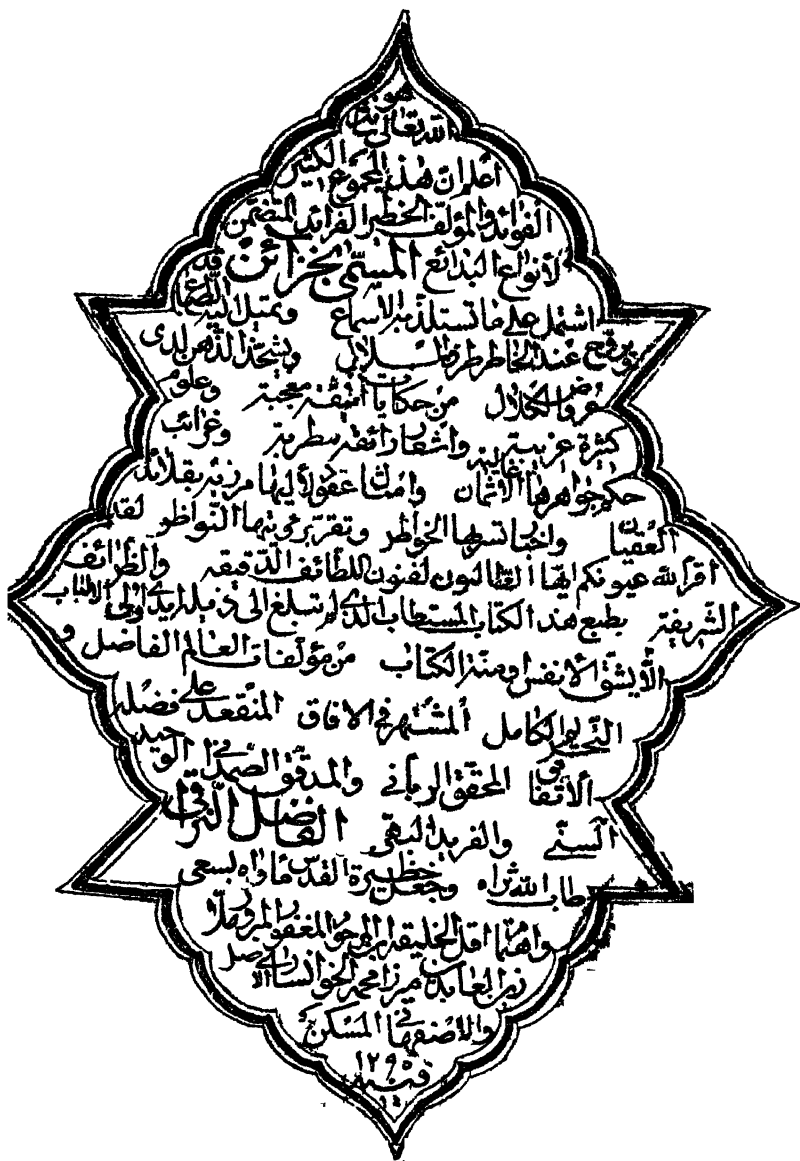 هو
الله تعالى شأنه
أعلم ان هذه المجموع الكثير
الفوائد والمؤلف الخطير الفرائد المتضمن
لأنواع البدائع المسمى بخزائن قد
اشتمل على ما تستلذ به الاسماع ويميل اليه الطباع
ويرتفع عند الخاطر الملال ويشحذ الذهن لدى
عروض الكلال من حكايات انيقة معجبة وعلوم
كثيرة غريبة واشعار رائقة مطربة وغرائب
حكم جواهرها غالية الاثمان وامثال عقود لآليها مزرية بقلائد
العقيان واخبار تسر بها الخواطر وتقر برؤيتها النواظر لقد
اقر الله عيونكم ايها الطالبون لفنون اللطائف الدقيقة والظرائف
الشريفة بطبع هذا الكتاب المستطاب الذي لم تبلغ الى ذيله ايدي اولى الالباب
الا بشق الانفس ومنة الكتاب من مؤلفات العالم الفاضل و
النحرير الكامل المشتهر في الافاق المنعقد على فضله
الاتفاق المحقق الرباني والمدقق الصمداني الوحيد
السني والفريد البهي الفاضل النراقي
طاب الله ثراه وجعل حظيرة القدس مأواه بسعي
واهتمام اقل الخليقة ابن المرحوم المغفور المبرور ملا
زين العابدين ميرزا محمد الخوانساري الاصل
والاصفهاني المسكن في
١٢٩٥